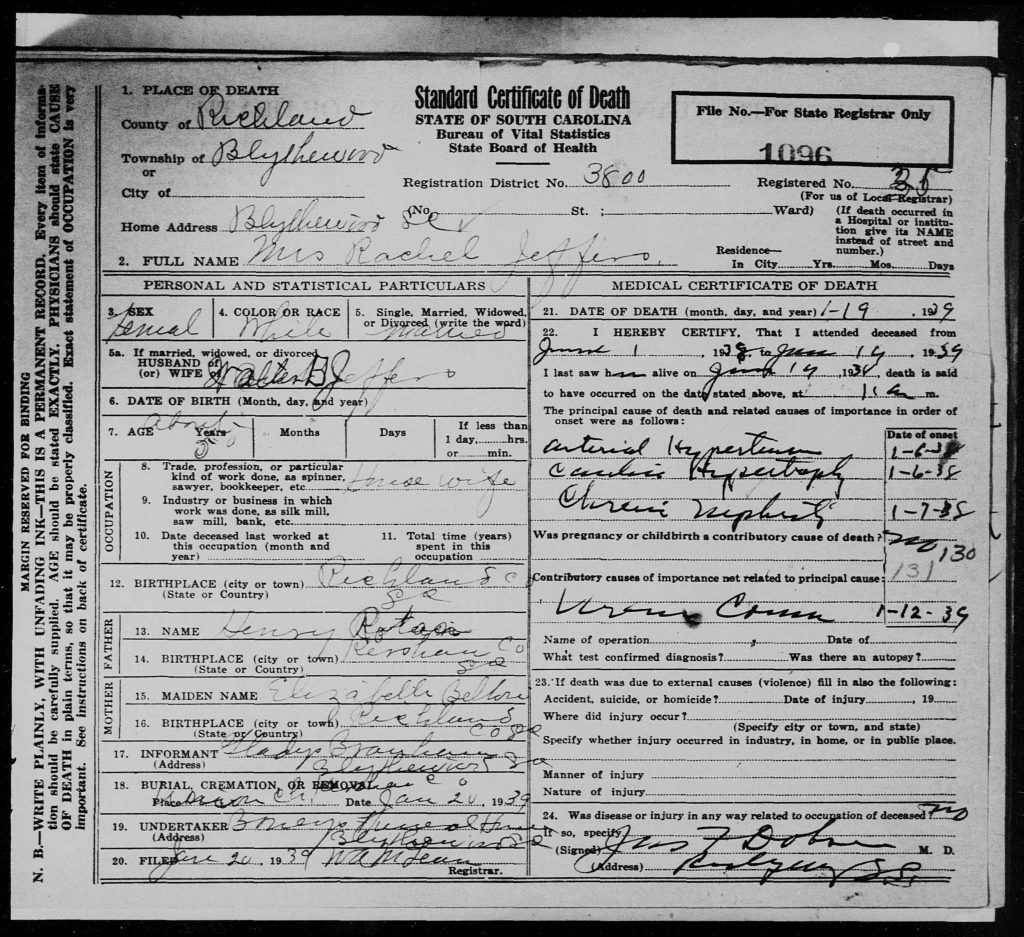 MARGIN RESERVED FOR BINDING
N. B.—WRITE PLAINLY, WITH UNFADING INK—THIS IS A PERMANENT RECORD. Every item of informa-
tion should be carefully supplied. AGE should be stated EXACTLY. PHYSICIANS should state CAUSE
OF DEATH in plain terms, so that it may be properly classified. Exact statement of OCCUPATION is very
important. See instructions on back of certificate.
1. PLACE OF DEATH
County of Richland
Township of Blythewood
or
City of
Standard Certificate of Death
STATE OF SOUTH CAROLINA
Bureau of Vital Statistics
State Board of Health
File No.—For State Registrar Only
1096
Registration District No. 3800
Registered No. 35
(For us of Local Registrar)
(No. St. ; Ward)
(If death occurred in
a Hospital or institu-
tion give its NAME
instead of street and
number.)
Home Address Blythewood SC
2. FULL NAME Mrs Rachel Jeffers.
Residence
In City Yrs. Mos. Days
PERSONAL AND STATISTICAL PARTICULARS
3. SEX
Femal
4. COLOR OR RACE
White
5. Single, Married, Widowed,
or Divorced (write the word)
Married
5a. If married, widowed, or divorced
HUSBAND of
(or) WIFE of Walter B Jeffers
6. DATE OF BIRTH (Month, day, and year)
7. AGE About Years Months Days
If less than
1 day, hrs.
or min.
OCCUPATION
8. Trade, profession, or particular
kind of work done, as spinner,
sawyer, bookkeeper, etc House wife
9. Industry or business in which
work was done, as silk mill,
saw mill, bank, etc.
10. Date deceased last worked at
this occupation (month and
year)
11. Total time (years)
spent in this
occupation
12. BIRTHPLACE (city or town) Richland Co
(State or Country) SC
FATHER
13. NAME Henry
14. BIRTHPLACE (city or town) Kershaw Co
(State or Country) SC
MOTHER
15. MAIDEN NAME Elizabeth
16. BIRTHPLACE (city or town) Richland
(State or Country) Co SC
17. INFORMANT Gladys
(Address) Blythewood SC
18. BURIAL, CREMATION, OR REMOVAL
Place Date Jan 20, 1939
19. UNDERTAKER Boneys Funeral Home
(Address) Blythewood SC
20. FILED Jan 20 1939
Registrar.
MEDICAL CERTIFICATE OF DEATH
21. DATE OF DEATH (month, day, and year) 1-19 1939
22. I HEREBY CERTIFY, That I attended deceased from
1, 1938, to 19 1939
I last saw her alive on 19, death is said
to have occurred on the date stated above, at 1 a m.
The principal cause of death and related causes of importance in order of
onset were as follows:
Date of onset
Arterial Hypertension 1-6-38
Cardiac Hypertrophy 1-6-38
Chronic Nephritis 1-7-38
Was pregnancy or childbirth a contributory cause of death? no
130
Contributory causes of importance not related to principal cause: 131
Uremic Coma 1-12-39
Name of operation Date of
What test confirmed diagnosis? Was there an autopsy?
23. If death was due to external causes (violence) fill in also the following:
Accident, suicide, or homicide? Date of injury , 19
Where did injury occur?
(Specify city or town, and state)
Specify whether injury occurred in industry, in home, or in public place.
Manner of injury
Nature of injury
24. Was disease or injury in any way related to occupation of deceased? no
If so, specify
(Signed) Jas F M. D.
(Address) SC